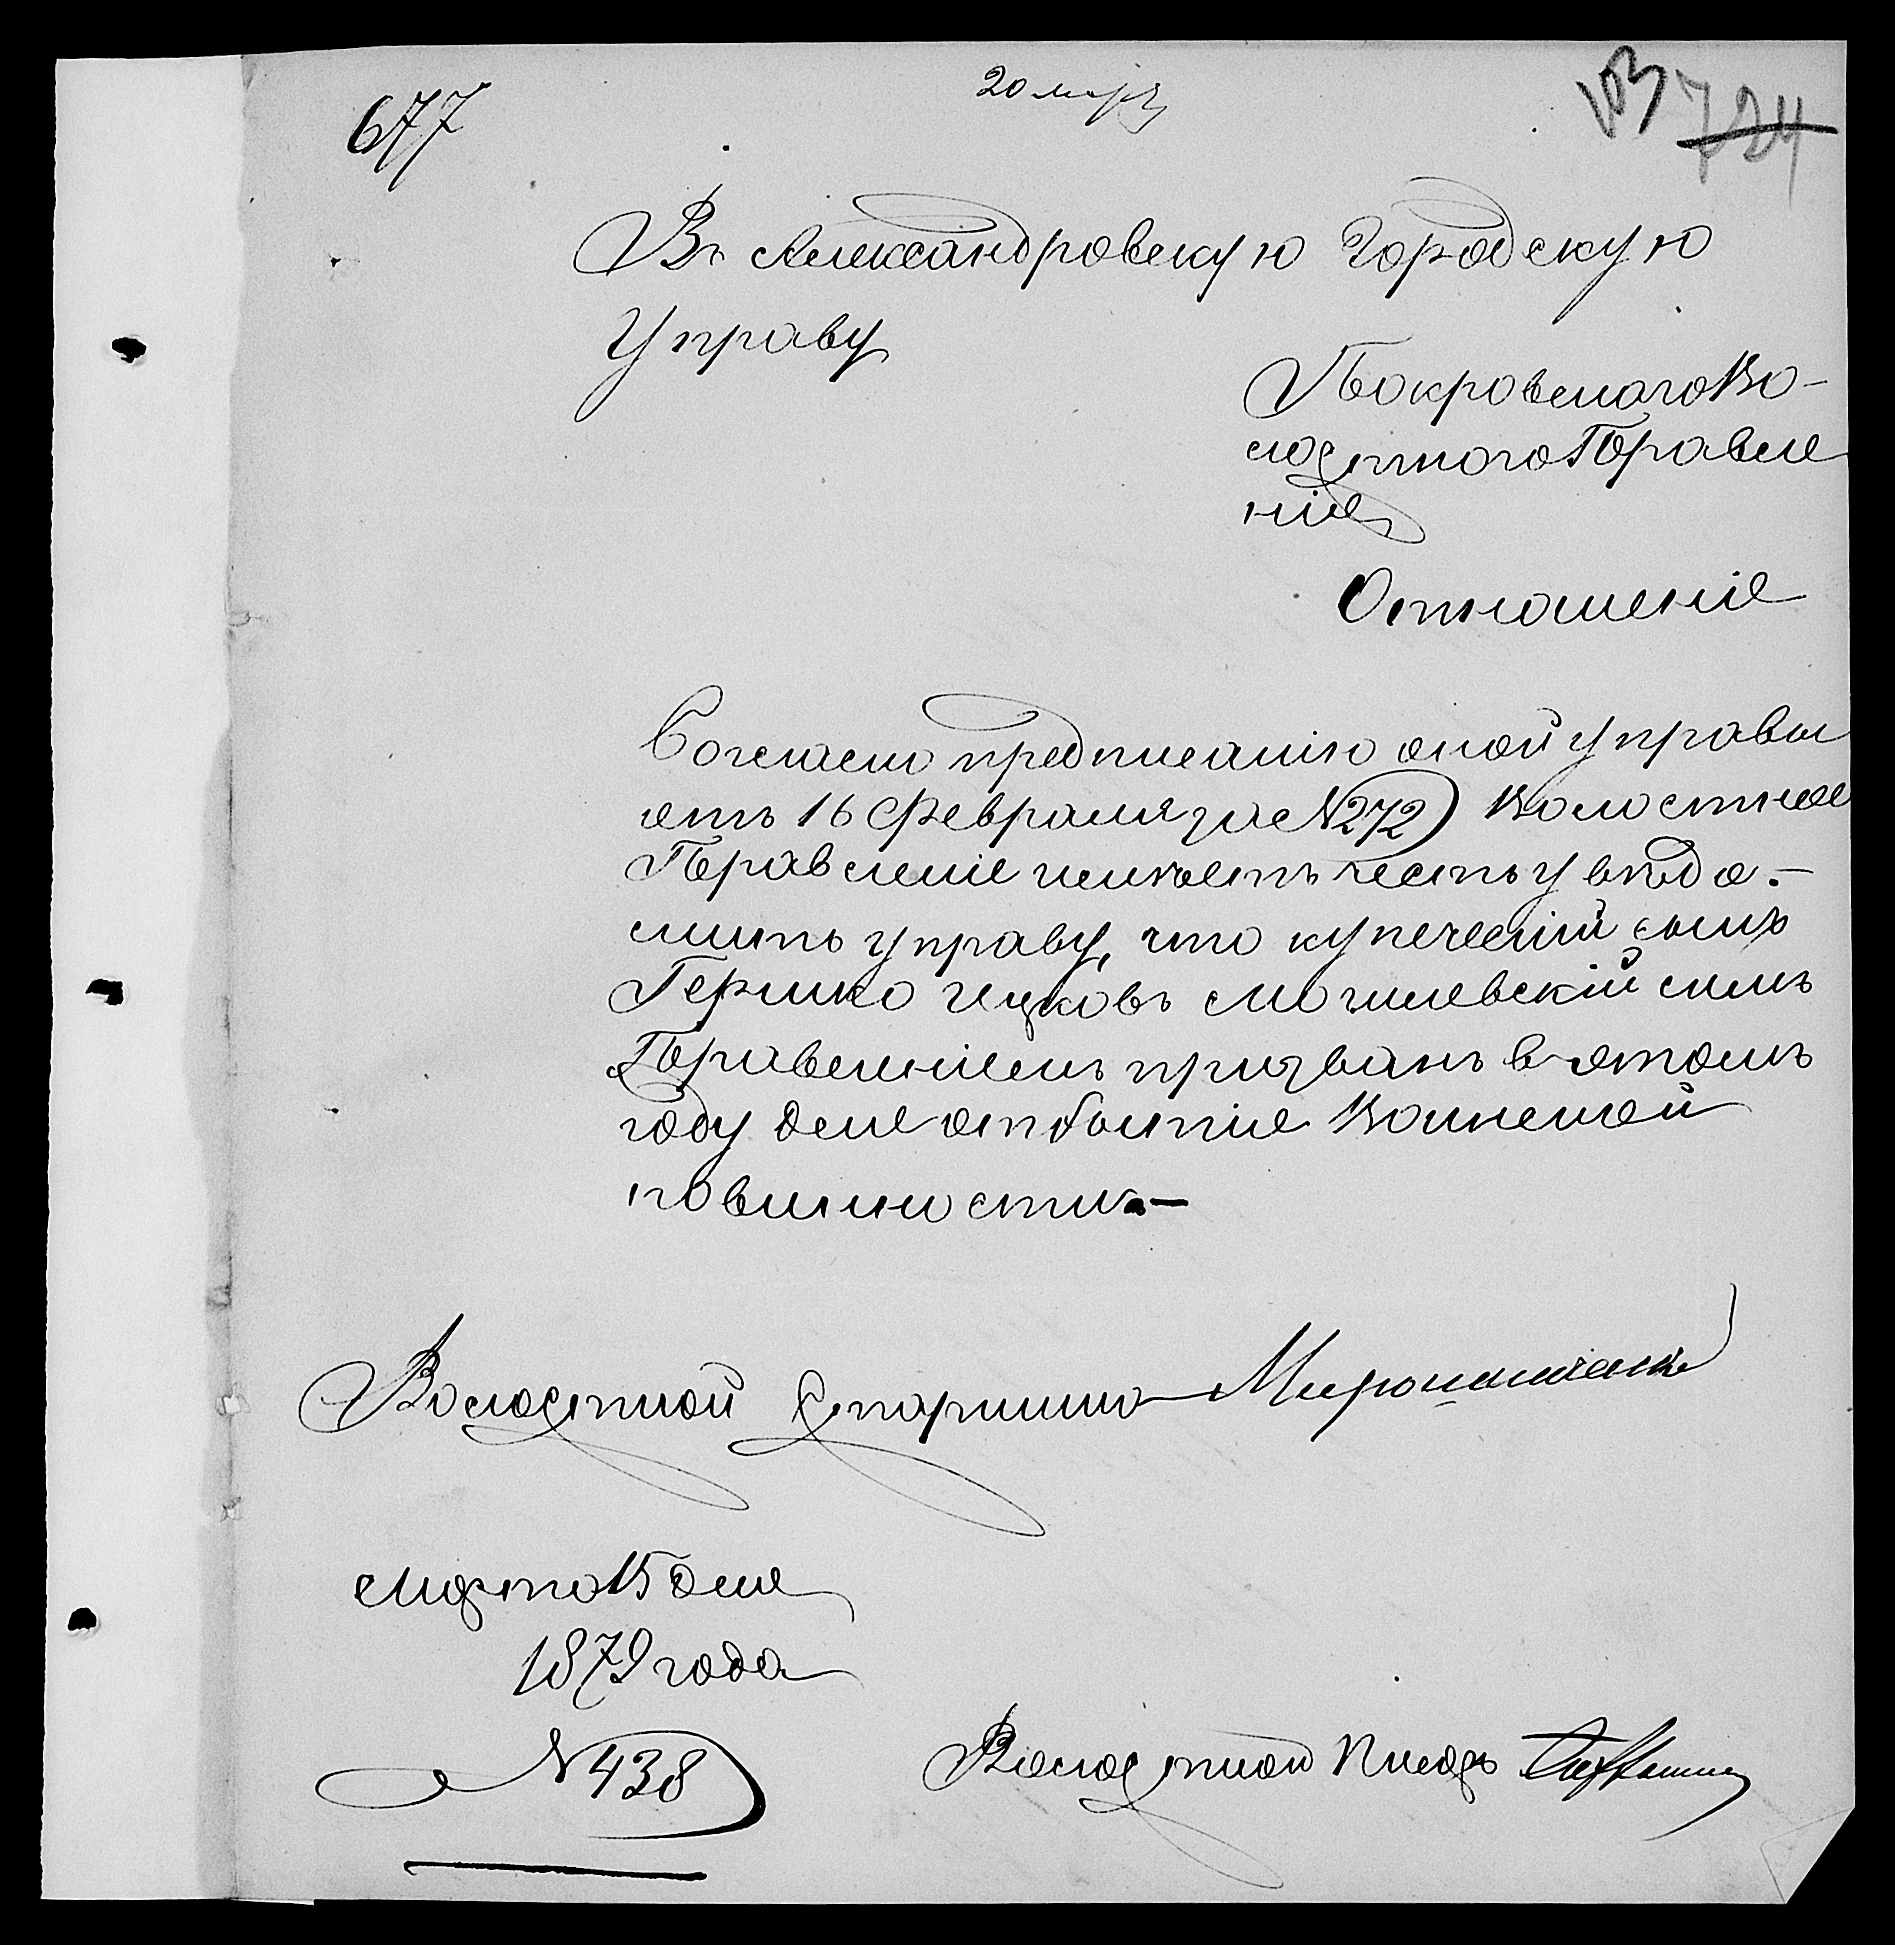 677
20 мар.
724
Въ Александровскую Городскую
Управу
Покровскаго Во-
лостного Правле
нія
Отношеніе
Согласно предписанію оной управы
отъ 16 Февраля за №272) Волостное
Правленіе имѣетъ честь увѣдо.-
мить управу, что купеческій сынъ
Гершко Ицковъ Могилевскій симъ
Правленіемъ призванъ в этомъ
году дле отбытіе Воинской
повинности.—
Волостной Старшина Мирошниченко
Марта 15 дня
1879 года
№438
Волостной Писарь